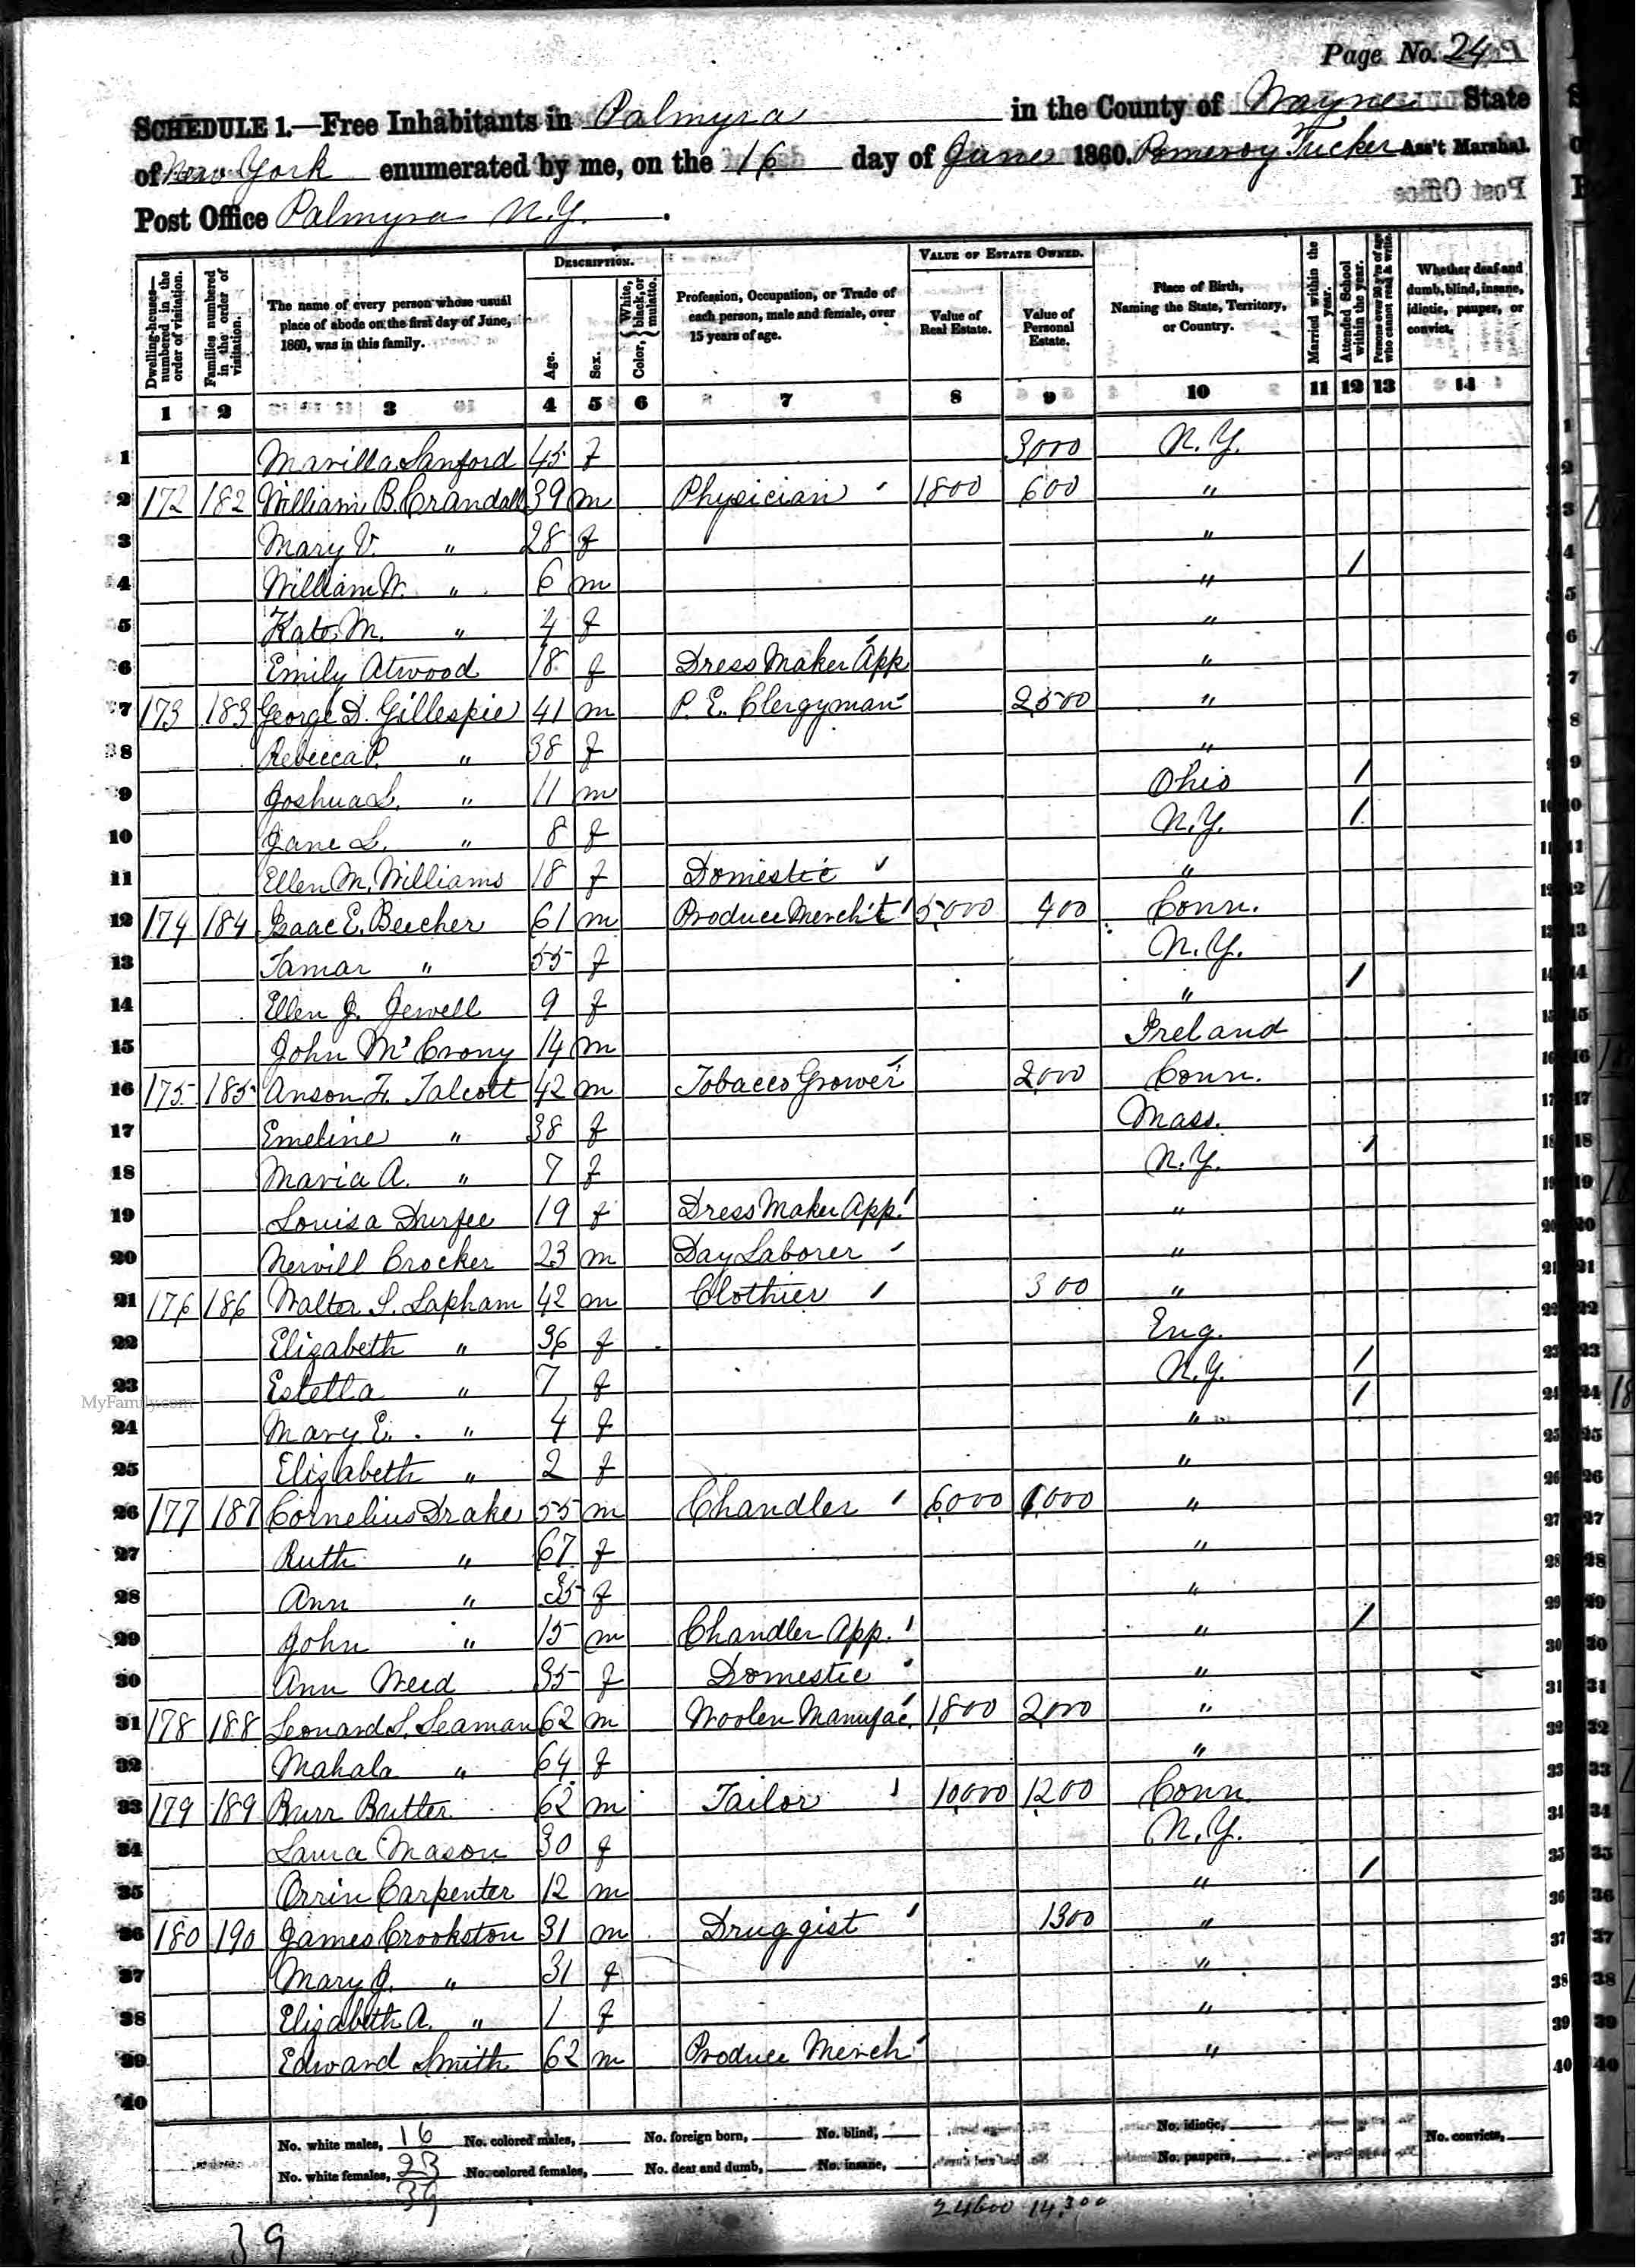 Page No. 24
SCHEDULE 1.—Free Inhabitants in Palmyra in the County of Wayne State
of New York enumerated by me, on the 16 day of June 1860. Pomeroy Tucker Ass't Marshal.
Post Office Palmyra N.Y.
Dwelling-houses—numbered in the order of visitation. Families numbered in the order of visitation. The name of every person whose usual place of abode on the first day of June, 1860, was in this family. DESCRIPTION. Age. Sex. Color, {White, black, or mulatto. Profession, Occupation, or Trade of each person, male and female, over 15 years of age. VALUE OF ESTATE OWNED. Value of Real Estate. Value of Personal Estate. Place of Birth, Naming the State, Territory, or Country. Married within the year. Attended School within the year. Persons over 20 y'rs of age who cannot read & write. Whether deaf and dumb, blind, insane, idiotic, pauper, or convict.
1 2 3 4 5 6 7 8 9 10 11 12 13 14
1 Marilla Sanford 45 f 3,000 N.Y.
2 172 182 William B. Crandall 39 m Physician 1800 600 "
3 Mary V. " 28 f "
4 William W. " 6 m " /
5 Kate M. " 4 f "
6 Emily Atwood 18 f Dress Maker App "
7 173 183 George D. Gillespie 41 m P. E. Clergyman 2,500 "
8 Rebecca P. " 38 f "
9 Joshua S. " 11 m Ohio /
10 Jane S. " 8 f N.Y. /
11 Ellen M. Williams 18 f Domestic "
12 174 184 Isaac E. Beecher 61 m Produce Merch't 5,000 400 Conn.
13 Tamar " 55 f N.Y.
14 Ellen J. Jewell 9 f " /
15 John McCrony 14 m Ireland
16 175 185 Anson F. Talcott 42 m Tobacco Grower 2,000 Conn.
17 Emeline " 38 f Mass.
18 Maria A. " 7 f N.Y. /
19 Louisa Durfee 19 f Dress Maker App. "
20 Nervill Crocker 23 m Day Laborer "
21 176 186 Walter S. Lapham 42 m Clothier 300 "
22 Elizabeth " 36 f Eng.
23 Estella " 7 f N.Y. /
24 Mary E. " 4 f " /
25 Elizabeth " 2 f "
26 177 187 Cornelius Drake 55 m Chandler 6,000 6,000 "
27 Ruth " 67 f "
28 Ann " 35 f "
29 John " 15 m Chandler App. " /
30 Ann Weed 35 f Domestic "
31 178 188 Leonard S. Seaman 62 m Woolen Manufac. 1,800 2,000 "
32 Mahala " 64 f "
33 179 189 Burr Butler 62 m Tailor 10,000 1200 Conn.
34 Laura Mason 30 f N.Y.
35 Orrin Carpenter 12 m " /
36 180 190 James Crookston 31 m Druggist 1300 "
37 Mary J. " 31 f "
38 Elizabeth A. " 1 f "
39 Edward Smith 62 m Produce Merch "
40
No. white males, 16 No. colored males, No. foreign born, No. blind, No. idiotic,
No. white females, 23 No. colored females, No. deaf and dumb, No. insane, No. paupers, No. convicts,
39
24600 14,300
39
MyFamily.com